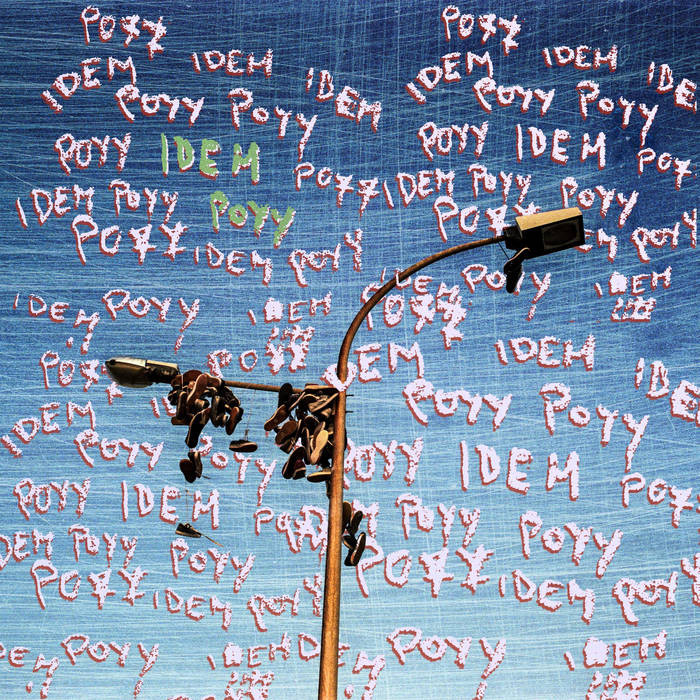 POYY POYY
IDEM IDEM IDEM IDEM IDEM IDE
POYY POYY POYY POYY
POYY IDEM POYY IDEM POY
POYY
IDEM POYY POYY IDEM POYY POYY
POYY IDEM POYY POYY EM POYY
IDEM POYY IDEM IDEM POYY IDEM
POYY POYY DEM IDEM ID
IDEM POYY POYY
POYY POYY IDEM
POYY IDEM POYY POY
DEM POYY POYY POYY POYY
POYY IDEM POYY POYY IDEM POYY
POYY IDEM IDEM POYY IDEM